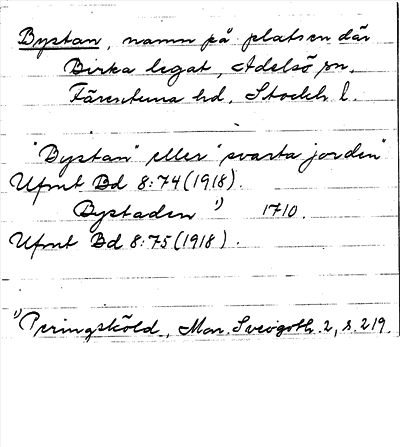 Bystan, namn på platsen där
Birka legat, Adelsö sn.
Färentuna hd, Stockh. l.
"Bystan" eller "svarta jorden"
Ufmt Bd 8:74 (1918).
Bystaden ¹) 1710.
Ufmt Bd 8:75 (1918).
¹) Peringsköld, Mon. Sveogoth. 2, s. 219.